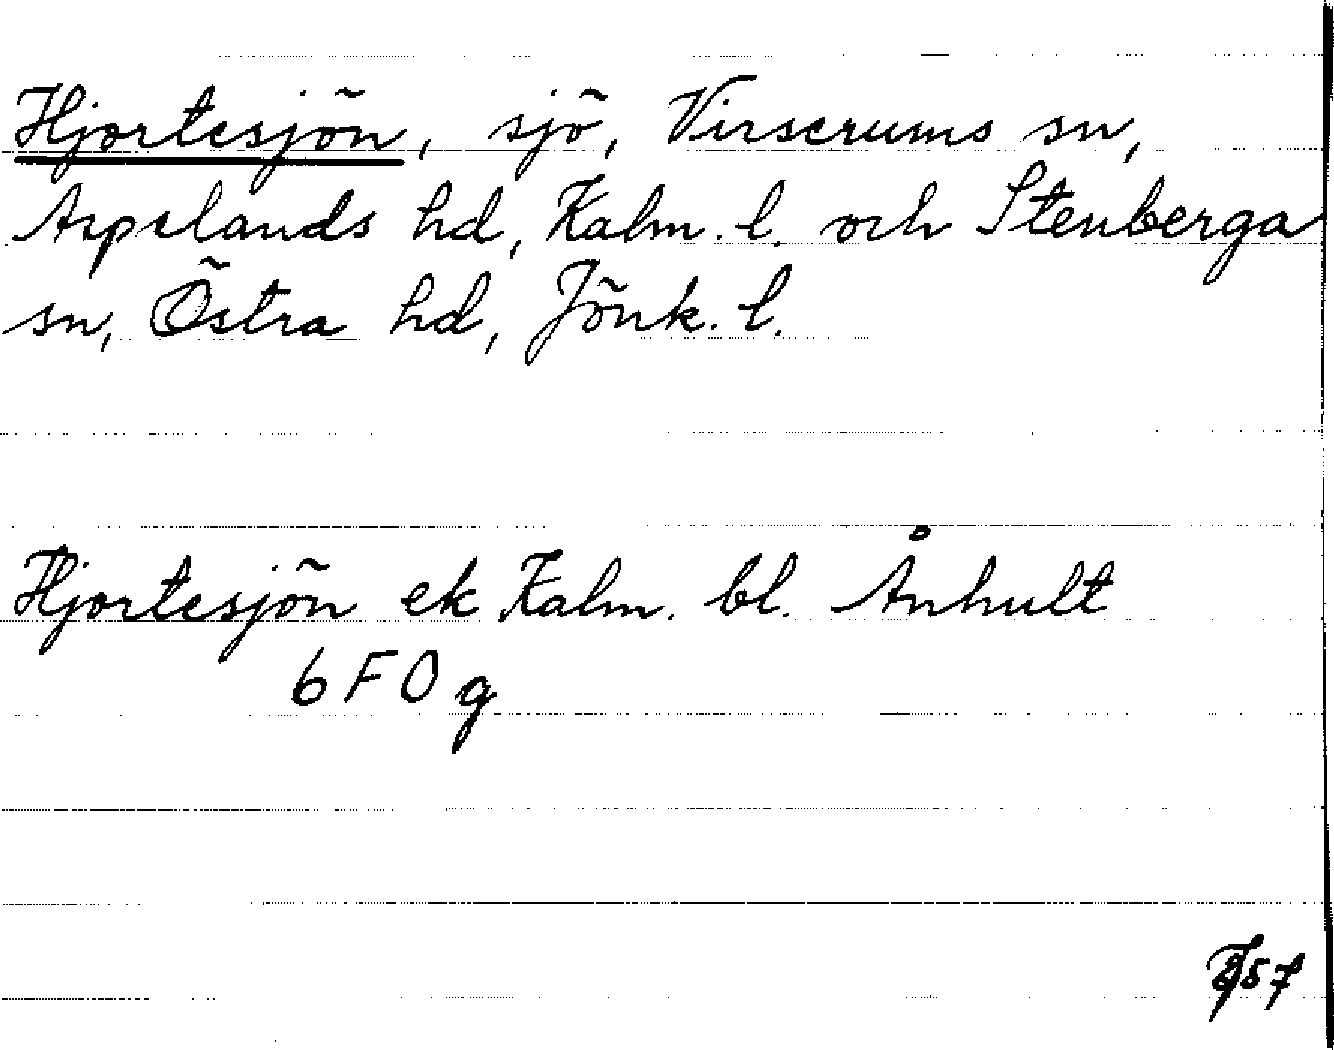 Hjortesjön, sjö, Virserums sn,
Aspelands hd, Kalm. l. och Stenberga
sn, Östra hd, Jönk. l.
Hjortesjön ek Kalm. bl. Ånhult
6 F 0 g